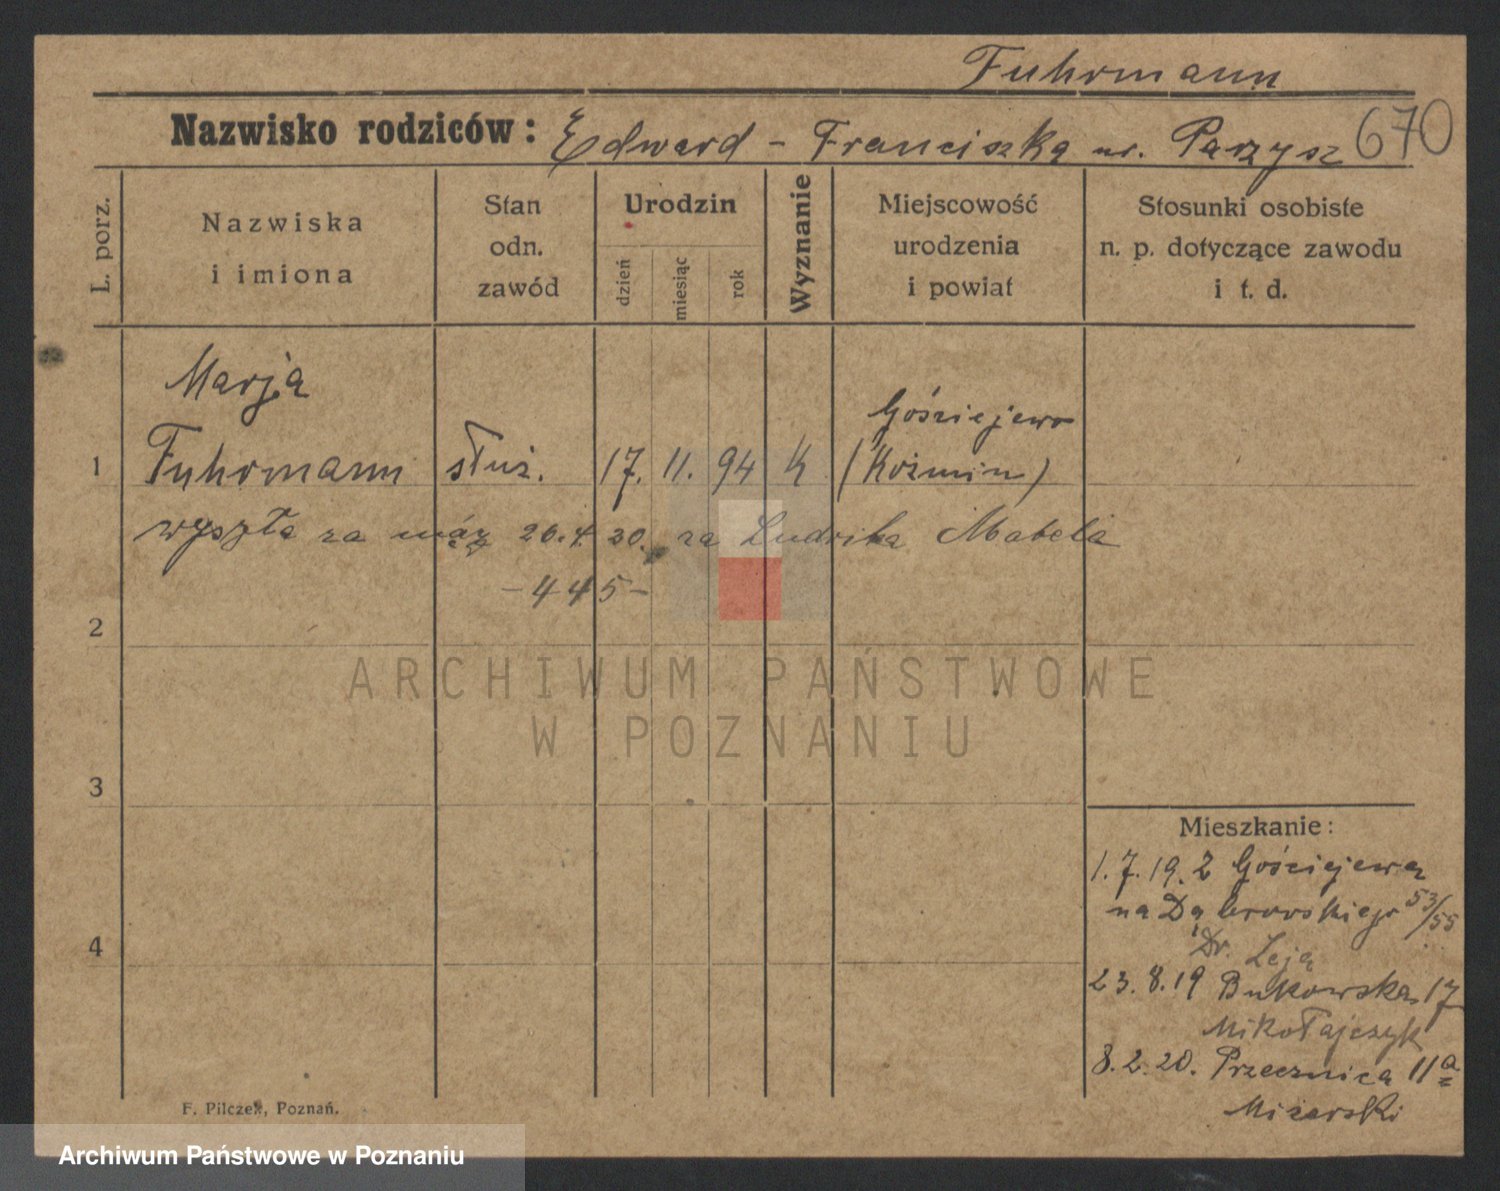 Fuhrmann
Nazwisko rodziców: Edward - Franciszka ur. Parzysz 670
L. porz.
Nazwiska
i imiona
Stan
odn.
zawód
Urodzin
dzień
miesiąc
rok
Wyznanie
Miejscowość
urodzenia
i powiat
Stosunki osobiste
n. p. dotyczące zawodu
i t. d.
Marja
Gościejewo
1 Fuhrmann służ. 17. 11. 94 K (Koźmin)
wyszła za mąż 26.4.30. za Ludwika Mabela
-445-
2
ARCHIWUM PAŃSTWOWE
W POZNANIU
3
Mieszkanie:
1.7.19. z Gościejewa
na Dąbrowskiego 53/55
4
Dr. Zeja
23.8.19 Bukowska 17
Mikołajczyk
8.2.20. Przecznica 11a
Mizerski
F. Pilczek, Poznań.
Archiwum Państwowe w Poznaniu